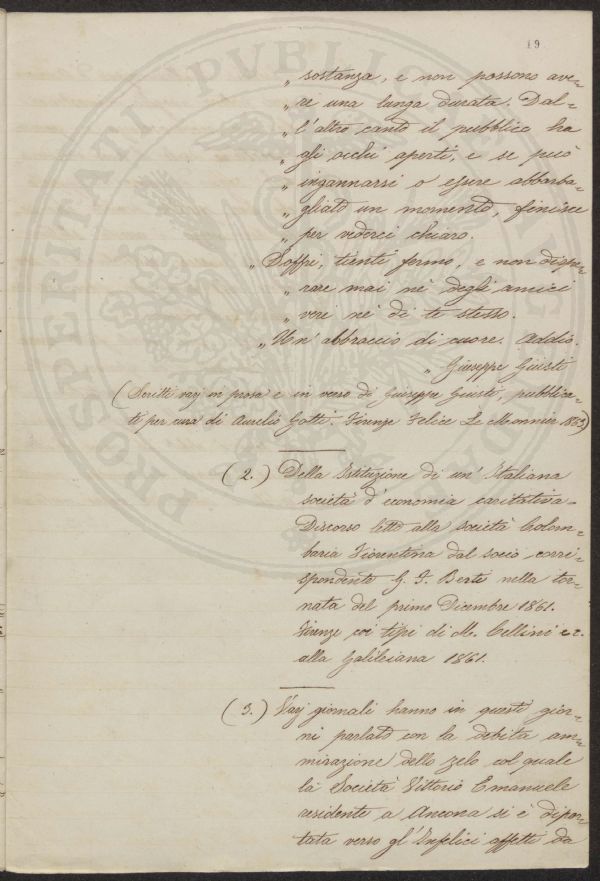 19
„ sostanza, e non possono ave=
„ re una lunga durata. Dal=
„ l'altro canto il pubblico ha
„ gli occhi aperti, e se può
„ ingannarsi o essere abbarba=
„ gliato un momento, finisce
„ per vederci chiaro.
„ Soffri, tienti fermo, e non dispe=
„ rare mai nè degli amici
„ veri nè di te stesso.
„ Un' abbraccio di cuore. Addio.
„ Giuseppe Giusti
(Scritti varj in prosa e in verso di Giuseppe Giusti, pubblica=
ti per cura di Aurelio Gotti. Firenze Felice Le Monnier 1863)
(2.) Della Istituzione di un' Italiana
società d'economia caritativa =
Discorso letto alla società Colom=
baria Fiorentina dal socio corri=
spondente G. F. Berti nella tor=
nata del primo Dicembre 1861.
Firenze coi tipi di M. Cellini e c.
alla Galileiana 1861.
(3.) Varj giornali hanno in questi gior=
ni parlato con la debita am=
mirazione dello zelo col quale
la Società Vittorio Emanuele
residente a Ancona si è dipor=
tata verso gl'Infelici affetti da
PROSPERITATI PVBLICAE AVGENDAE